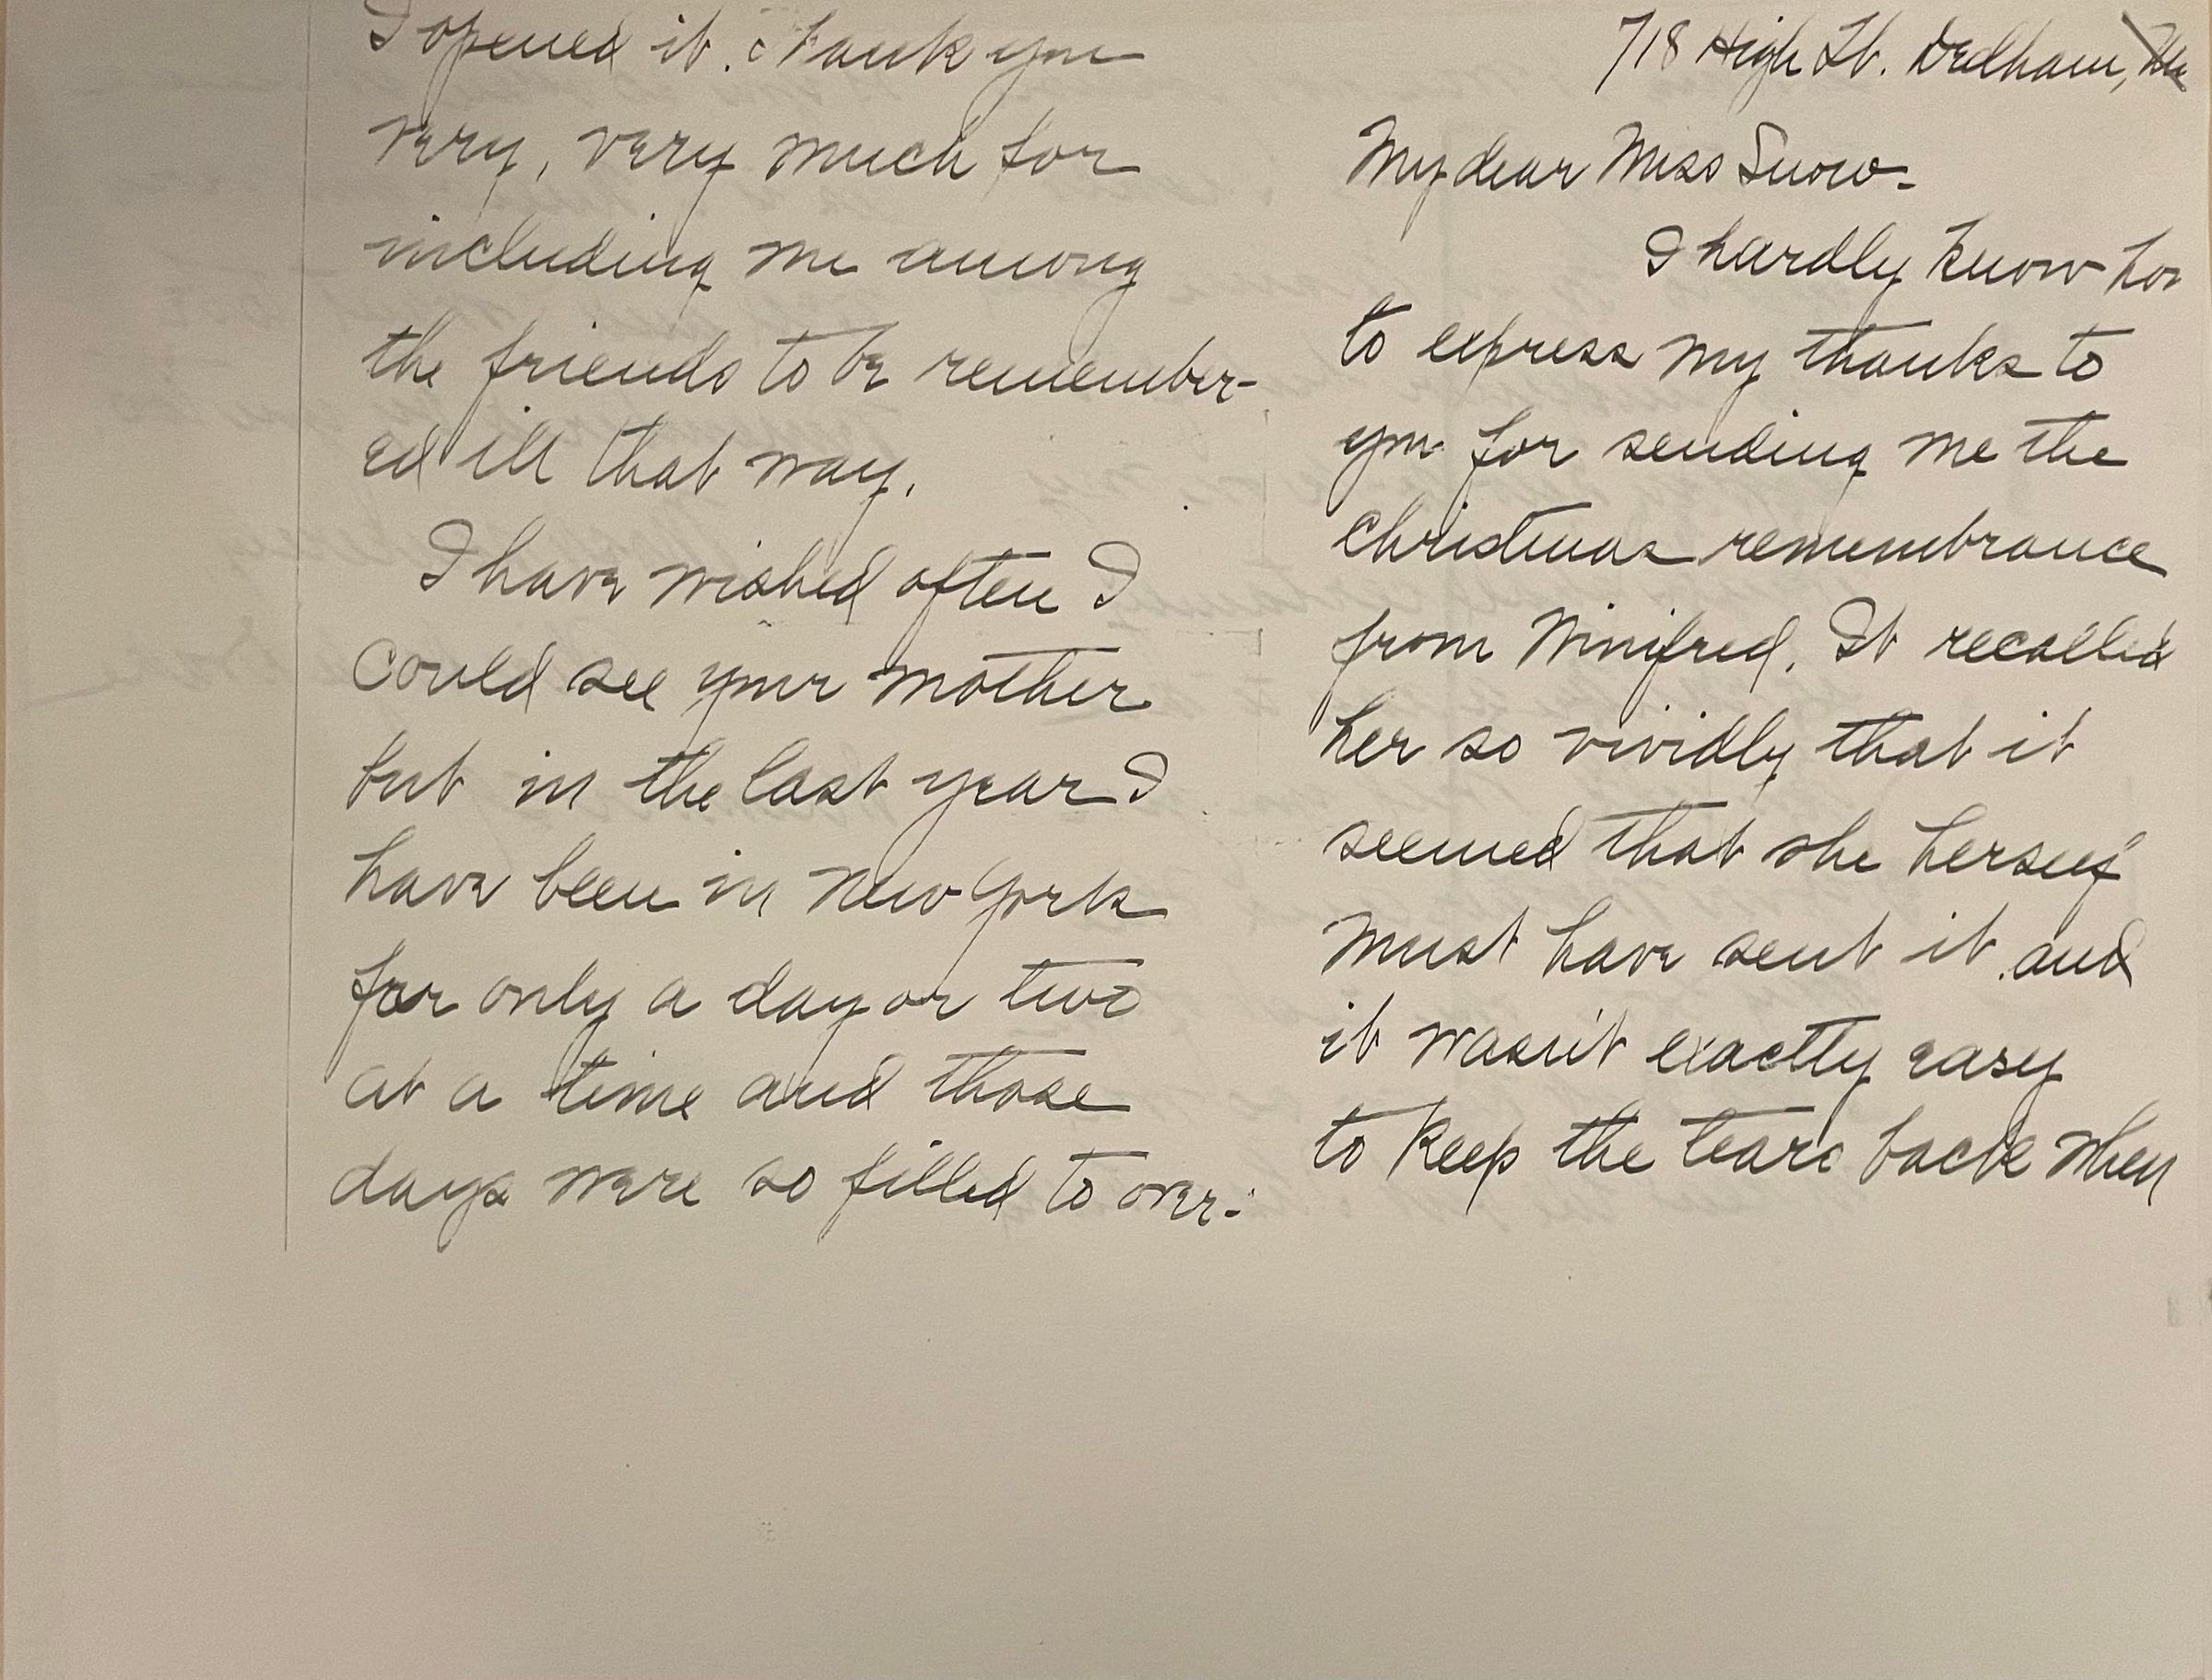 718 High St. Dedham,
My dear Miss Snow-
I hardly know how
to express my thanks to
you for sending me the
Christmas remembrance
from Winifred. It recalled
her so vividly that it
seemed that she herself
must have sent it and
it wasn't exactly easy
to keep the tears back when
I opened it. Thank you
very, very much for
including me among
the friends to be remember-
ed in that way.
I have wished often I
could see your mother
but in the last year I
have been in New York
for only a day or two
at a time and those
days were so filled to over-